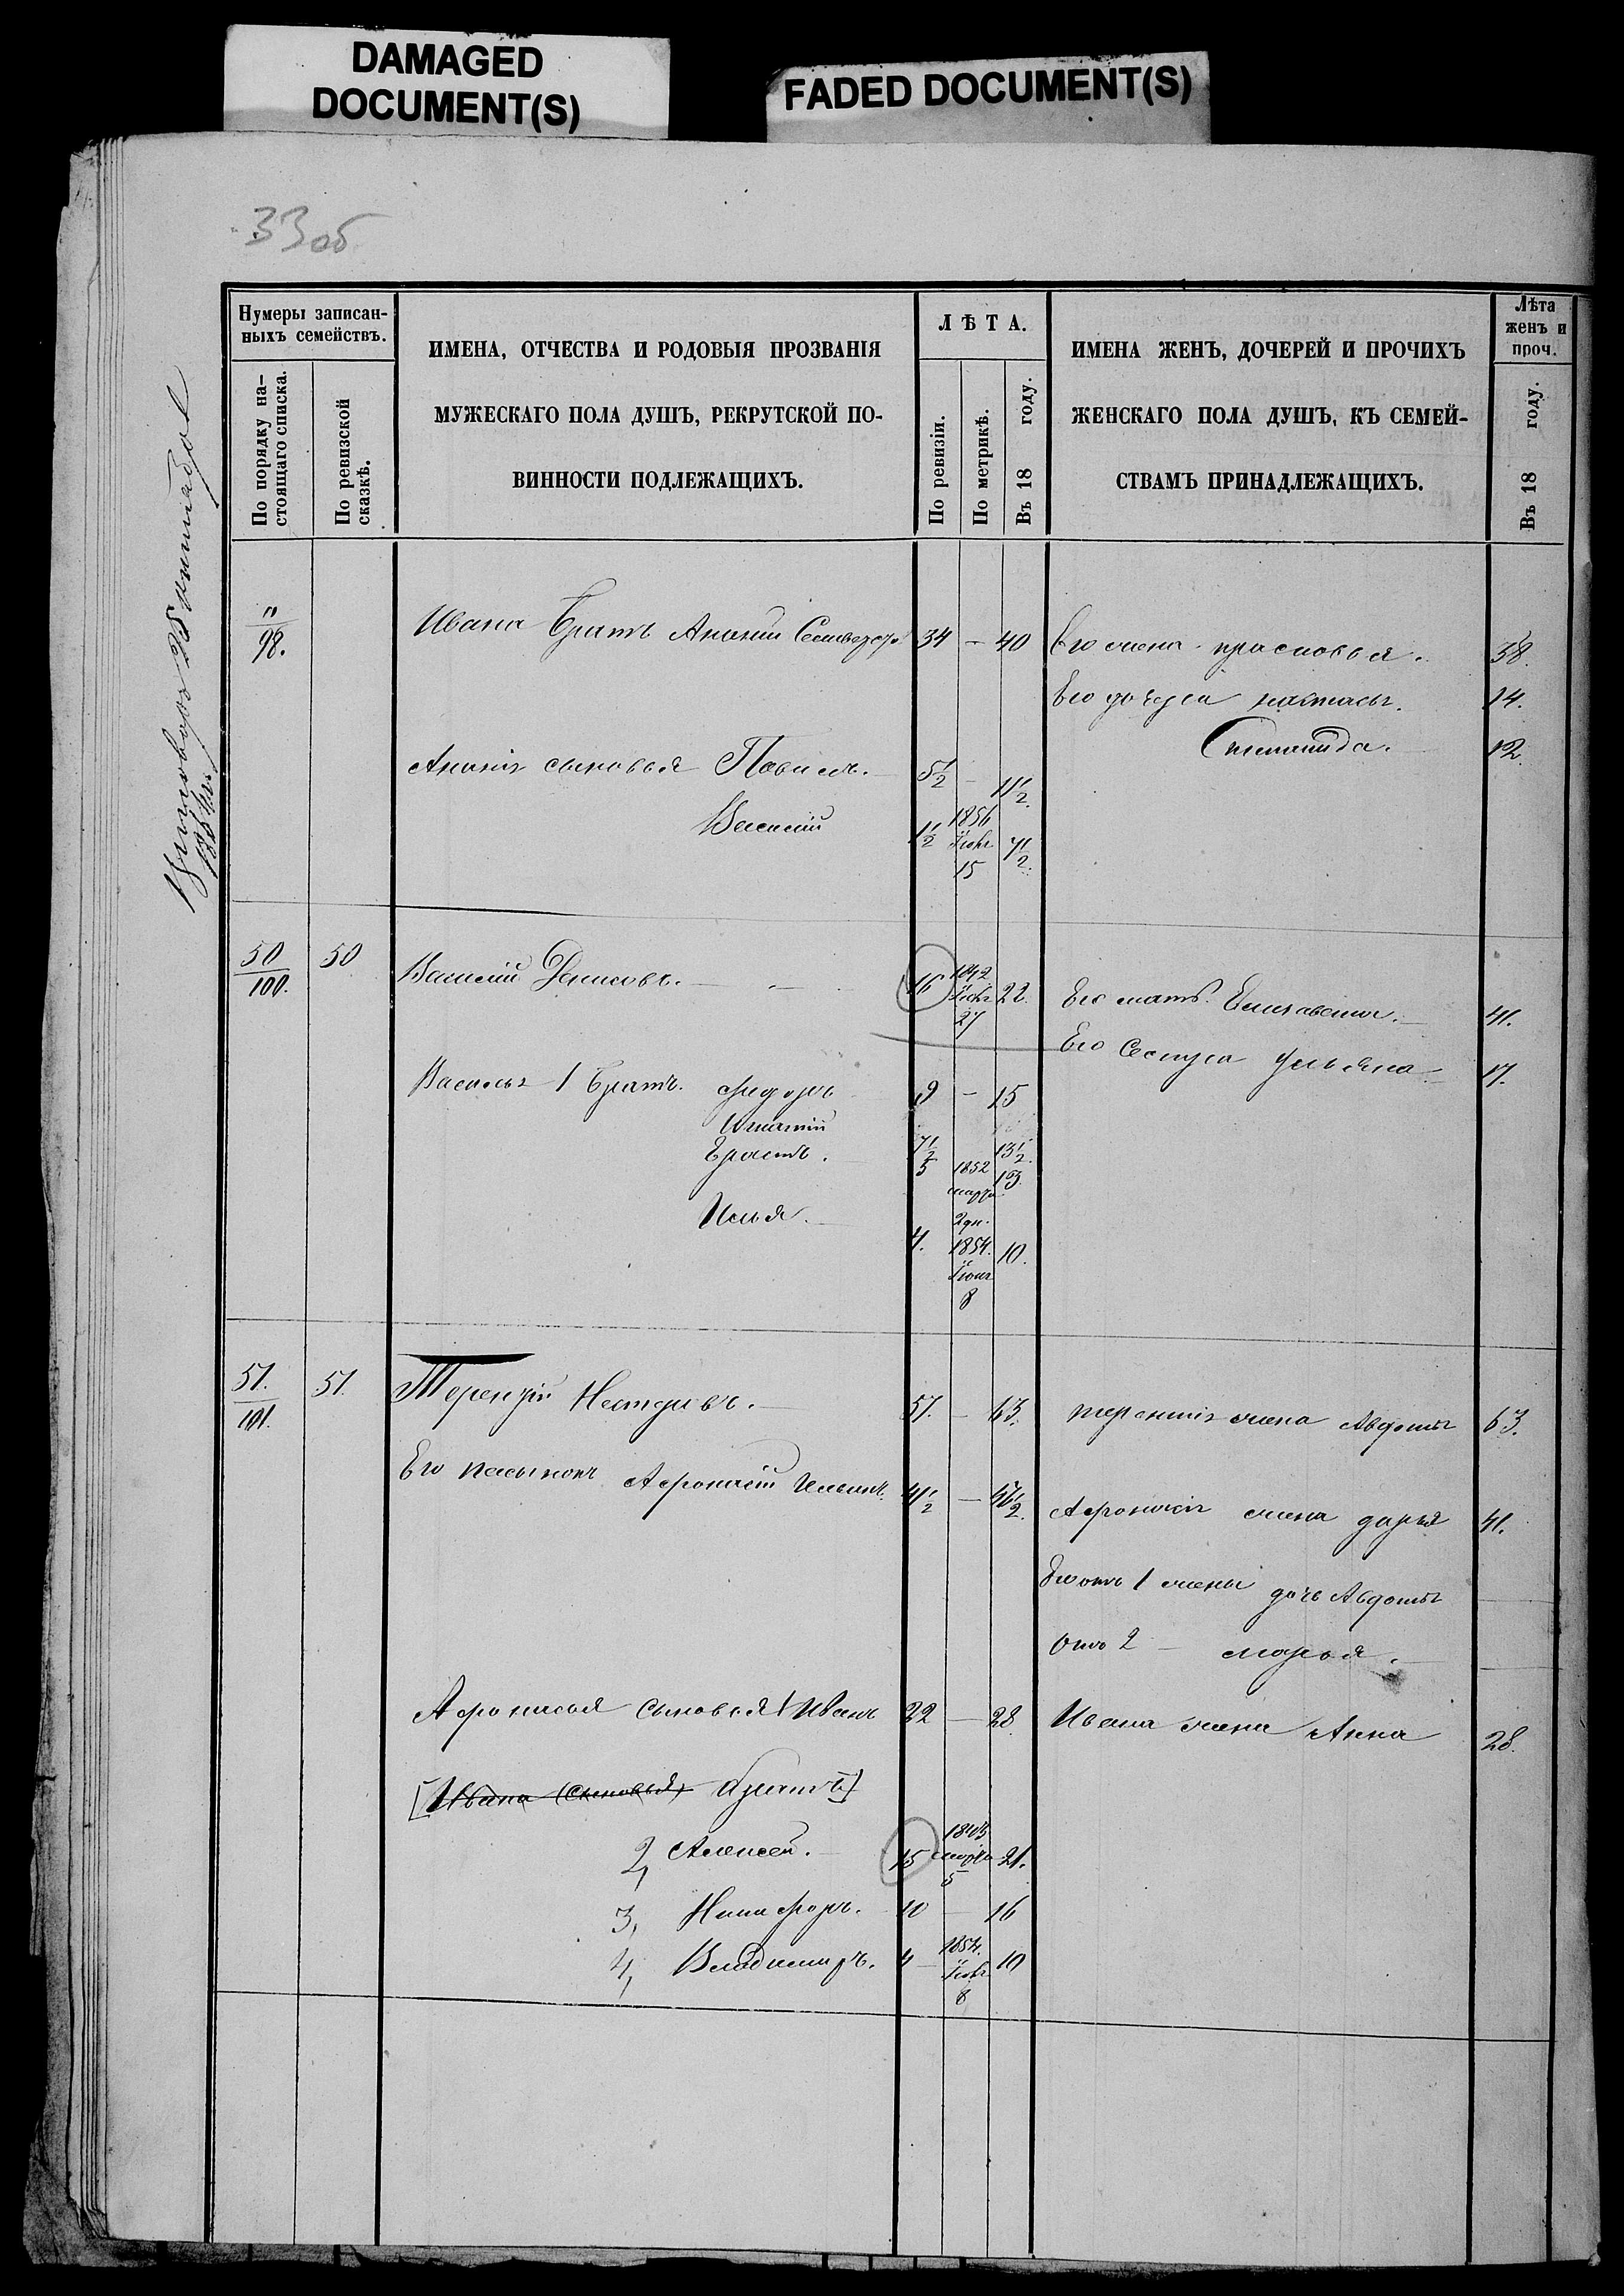 DAMAGED
DOCUMENT(S)
FADED DOCUMENT(S)
33об
Нумеры записан-
ныхъ семействъ.
По порядку на-
стоящаго списка.
По ревизской
сказкѣ.
ИМЕНА, ОТЧЕСТВА И РОДОВЫЯ ПРОЗВАНІЯ
МУЖЕСКАГО ПОЛА ДУШЪ, РЕКРУТСКОЙ ПО-
ВИННОСТИ ПОДЛЕЖАЩИХЪ.
ЛѢТА.
По ревизіи.
По метрикѣ.
Въ 18 году.
ИМЕНА ЖЕНЪ, ДОЧЕРЕЙ И ПРОЧИХЪ
ЖЕНСКАГО ПОЛА ДУШЪ, КЪ СЕМЕЙ-
СТВАМЪ ПРИНАДЛЕЖАЩИХЪ.
Лѣта
женъ и
проч.
Въ 18 году.
"
98.
Ивана Братъ Ананій 34 – 40 Его жена прасковья. 38.
Его дочери настасья. 14.
Степанида. 12.
Ананія сыновья Павилъ. 5 1/2 – 11 1/2.
Василій 1 1/2 1856 15 7 1/2.
50
100. 50 Василій Денисовъ. – – 16 1842 27 22. Его мать Елизавета. 41.
Его Сестра Ульяна 17.
Василья 1 братъ. Фидоръ 9 – 15
Игнатій 7 1/2 13 1/2.
Ерастъ. 5 1852 марта 2 дн. 13.
Илья. 4. 1854. 8 10.
51.
101. 51. Терентій Нестеровъ. 57. – 63. терентія жена Авдотья 63.
Его пасынокъ Афронасій Ильинъ. 41 1/2 – 47 1/2. Афронасія жена дарья 41.
Его отъ 1 жены дочь Авдотья
Отъ 2 – марья.
Афронасья Сыновья 1 Иванъ 22 – 28. Ивана жена Анна 28.
[Ивана (Сыновья) братъ]
2, Алексей. 15 1843 марта 5 21.
3, Никифоръ. 10 – 16
4, Владимиръ. 4 1854. 8 10